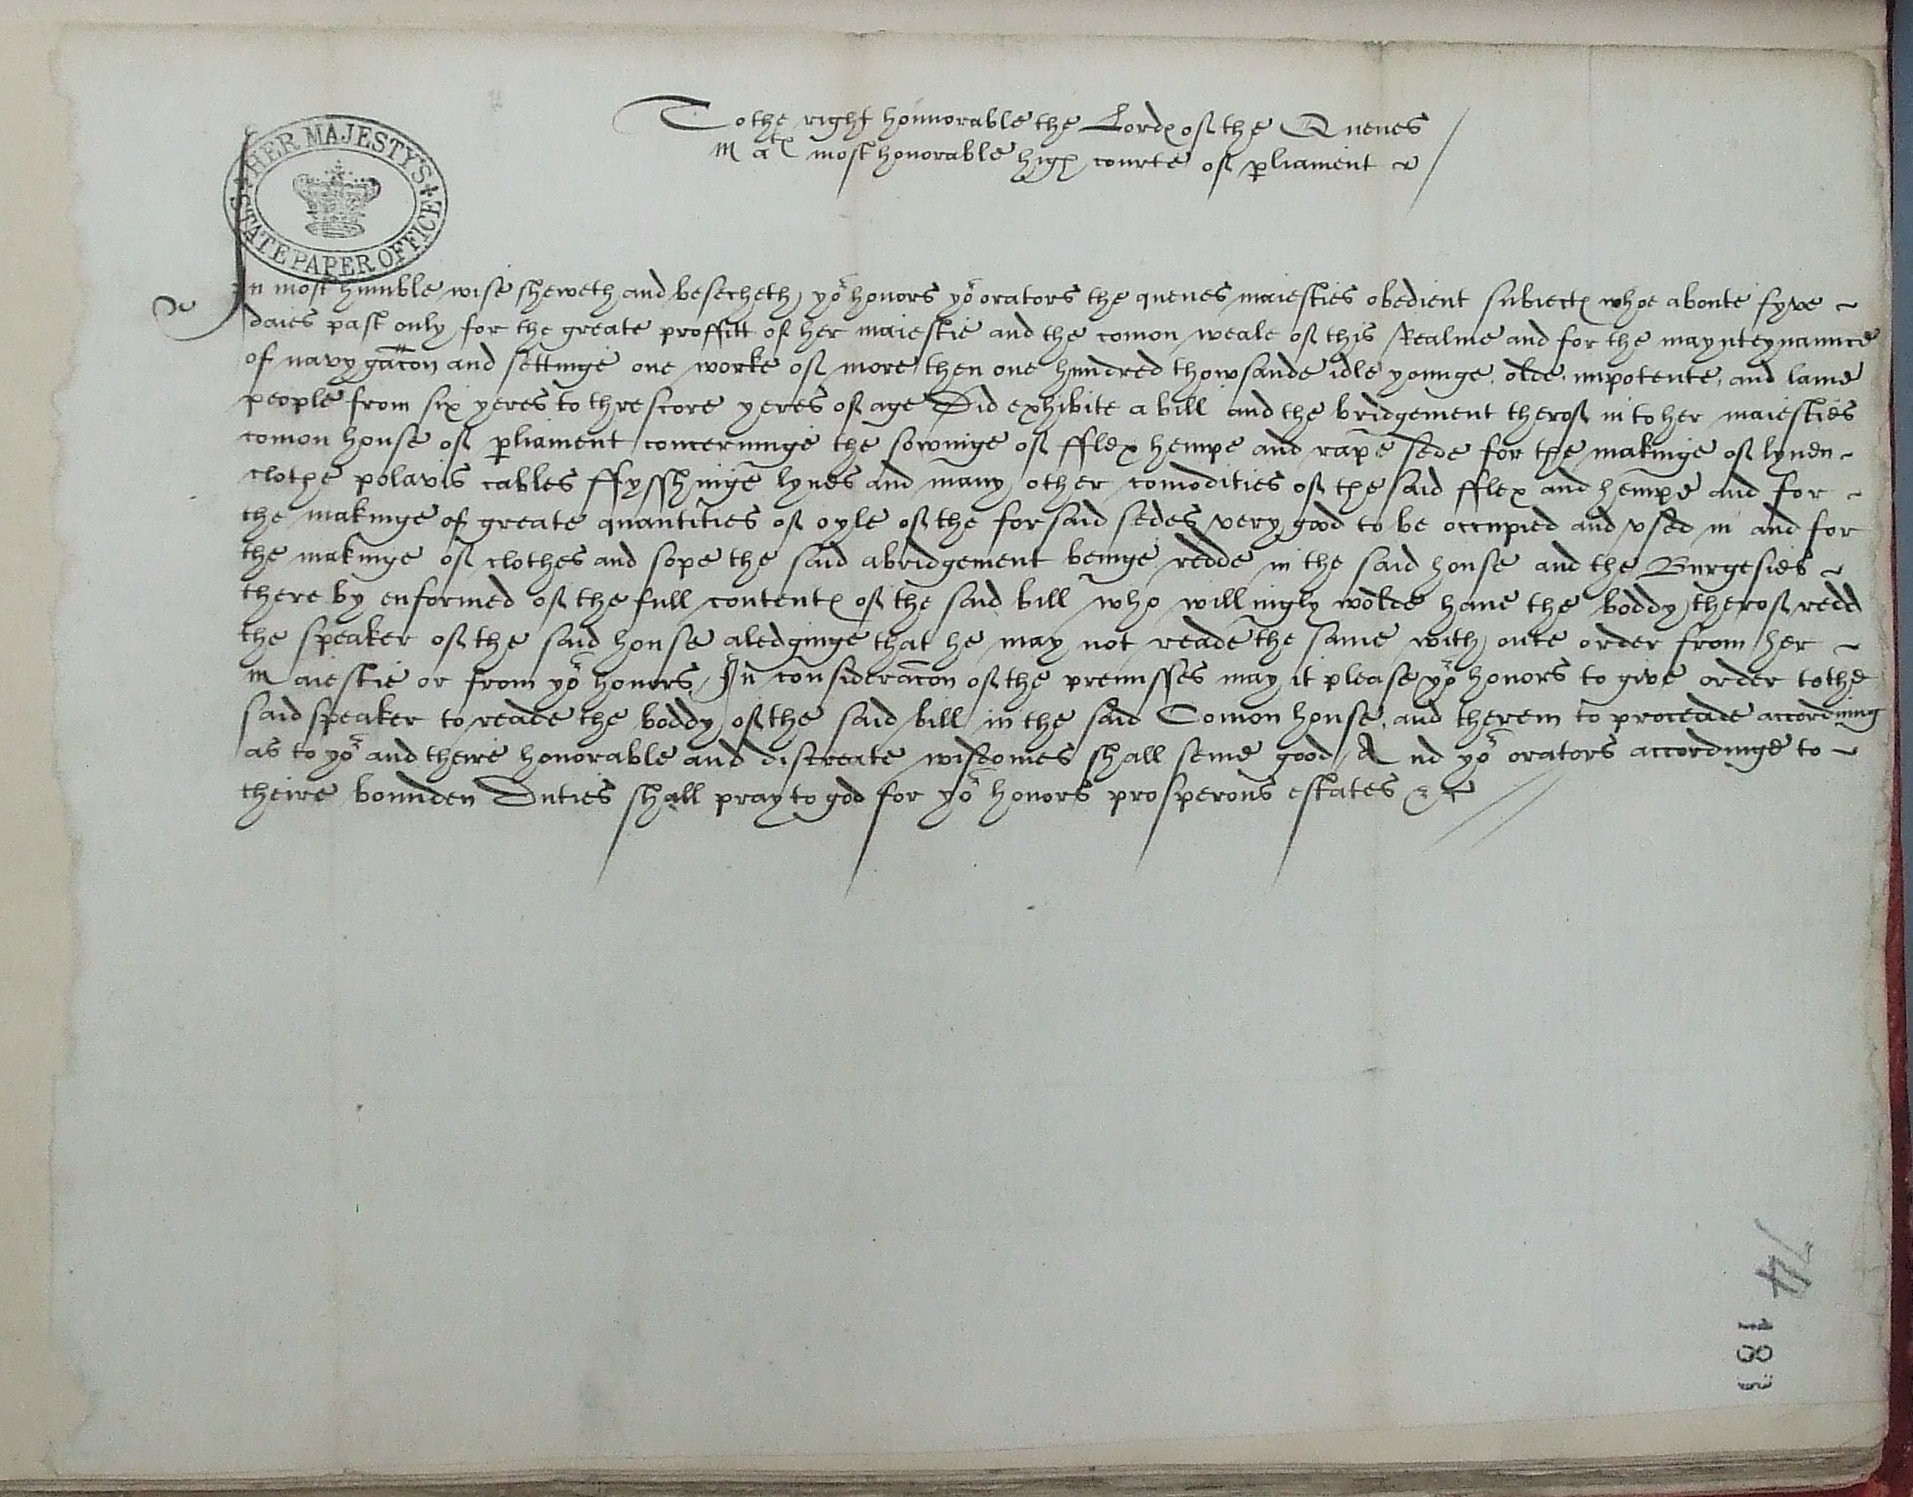 To the right honnorable the Lordes of the Quenes
Mates most honorable high courte of perliament
HER MAJESTY'S
STATE PAPER OFFICE
In most humble wise sheweth and besecheth yor honors yor orators the quenes maiesties obedient subiectes whoe aboute fyve
daies past only for the greate proffitt of her maiestie and the comon weale of this Realme and for the maynteynaunce
of navygacon and settinge one worke of more then one hundred thowsande idle younge, olde, impotente, and lame
people from six yeres to threscore yeres of age Did exhibite a bill and the bridgement therof in to her maiesties
comon house of perliament concerninge the sowinge of fflex hempe and rape sede for the makinge of lynen
clothe polavis cables ffysshinge lynes and many other comodities of the said fflex and hempe and for
the makinge of greate quantities of oyle of the forsaid sedes very good to be occupied and vsed in and for
the makinge of clothes and sope the said abridgement beinge redde in the said house and the Burgesies
there by enformed of the full contentes of the said bill who willingly wolde haue the boddy therof redd
the speaker of the said house aledginge that he may not reade the same with oute order from her
Maiestie or from yor honors / In consideracon of the premisses may it please yor honors to give order to the
said speaker to reade the boddy of the said bill in the said Comon house, and therein to proceade accordning
as to yor and theire honorable and discreate wisdomes shall seme good / And yor orators accordinge to
theire bounden Duties shall pray to god for yor honors prosperous estates &c
74
183